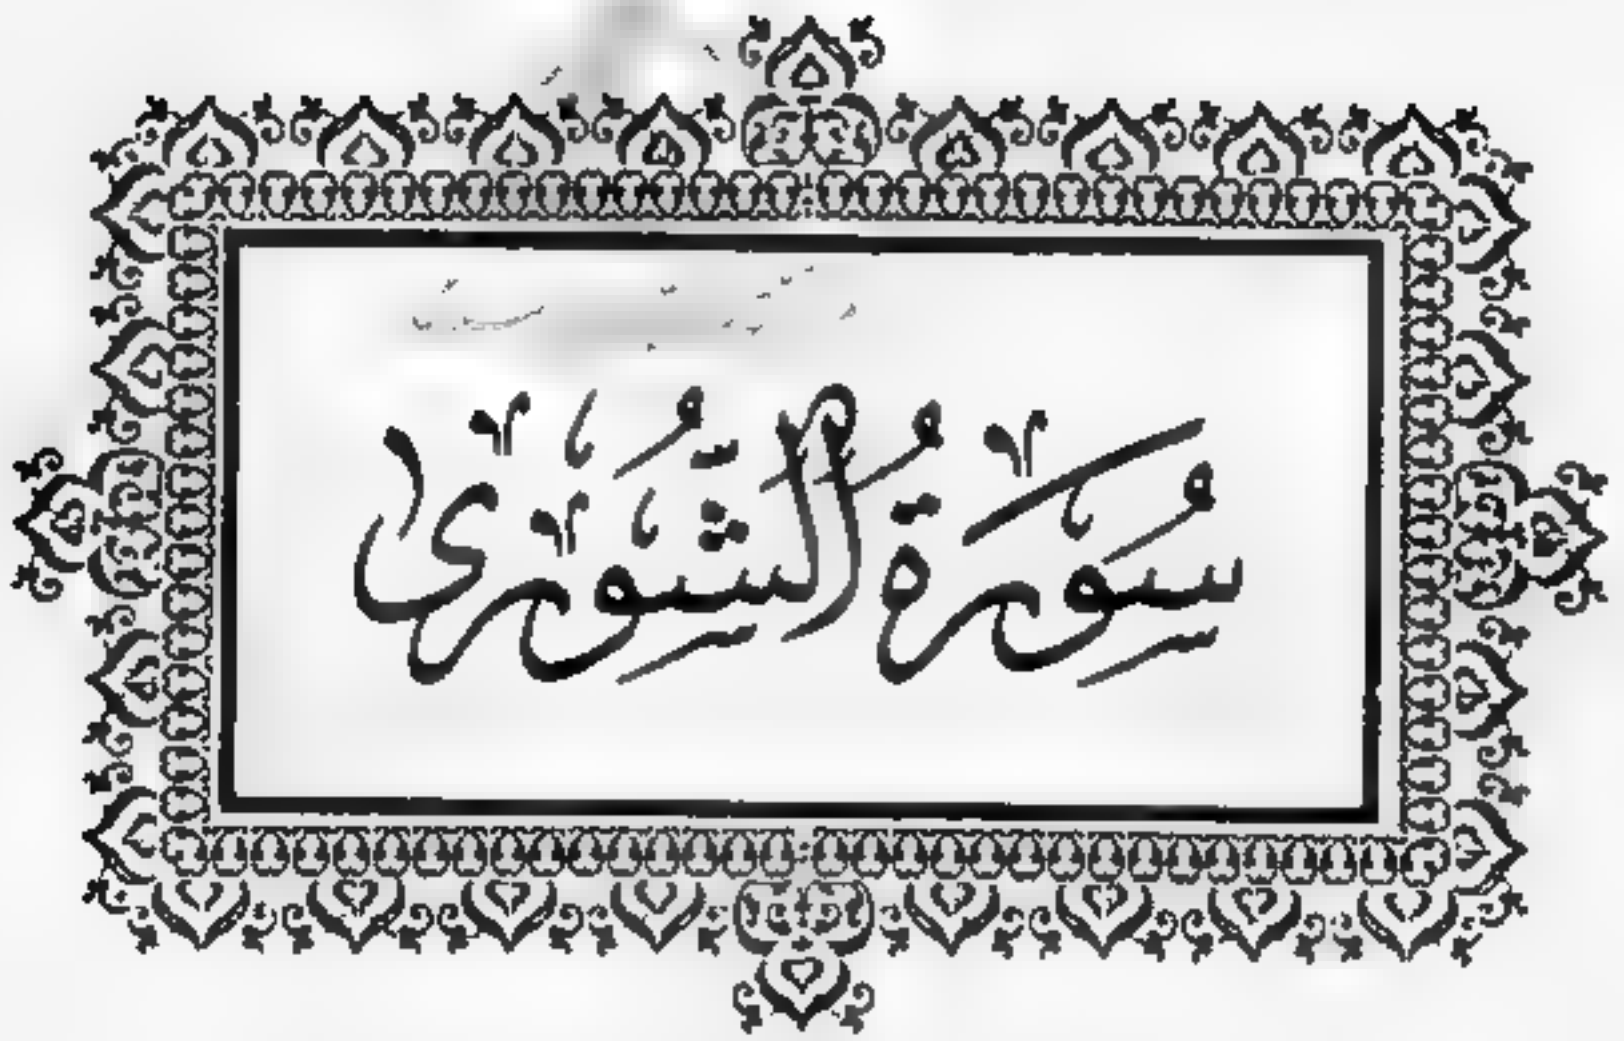 سُورَةُ الشُّورَى